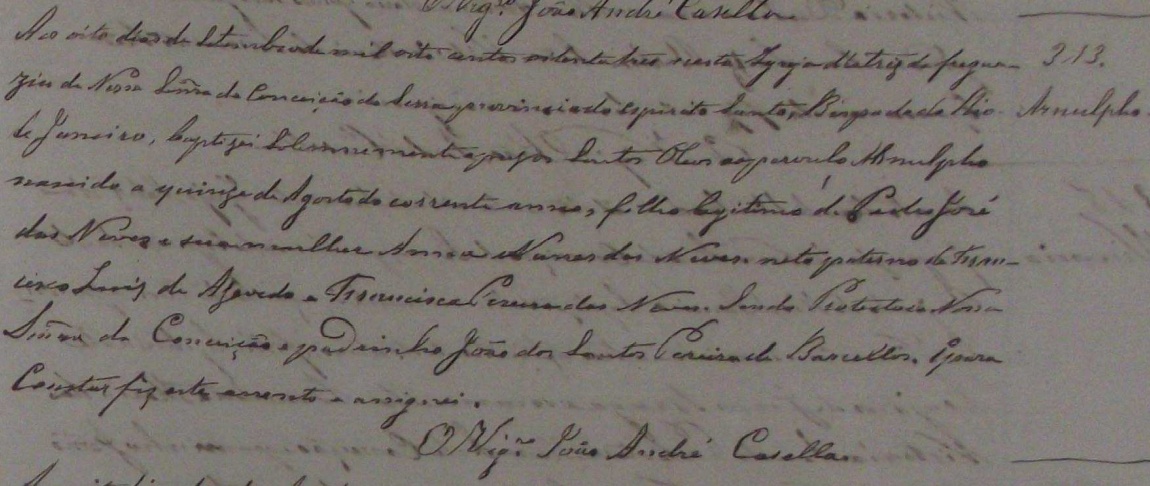 O Vigº João André Casella
Aos oito dias de Setembro de mil oito centos oitenta tres nesta Igreja Matriz da fregue- 313.
zia de Nossa Senra da Conceição da Serra provincia do espirito Santo, Bispado do Rio Arnulpho
de Janeiro, baptizei solemnemente e puz os Santos Oleos ao parvulo Arnulpho
nascido a quinze de Agosto do corrente anno, filho legitimo de Pedro José
das Neves e sua mulher Anna Nunes das Neves. neto paterno de Fran-
cisco Luiz de Azevedo e Francisca Pereira das Neves. Sendo Protectora Nossa
Senra da Conceição e padrinho João dos Santos Pereira de Barcellos. E para
Constar fiz este assento e assignei.
O Vigº João André Casella